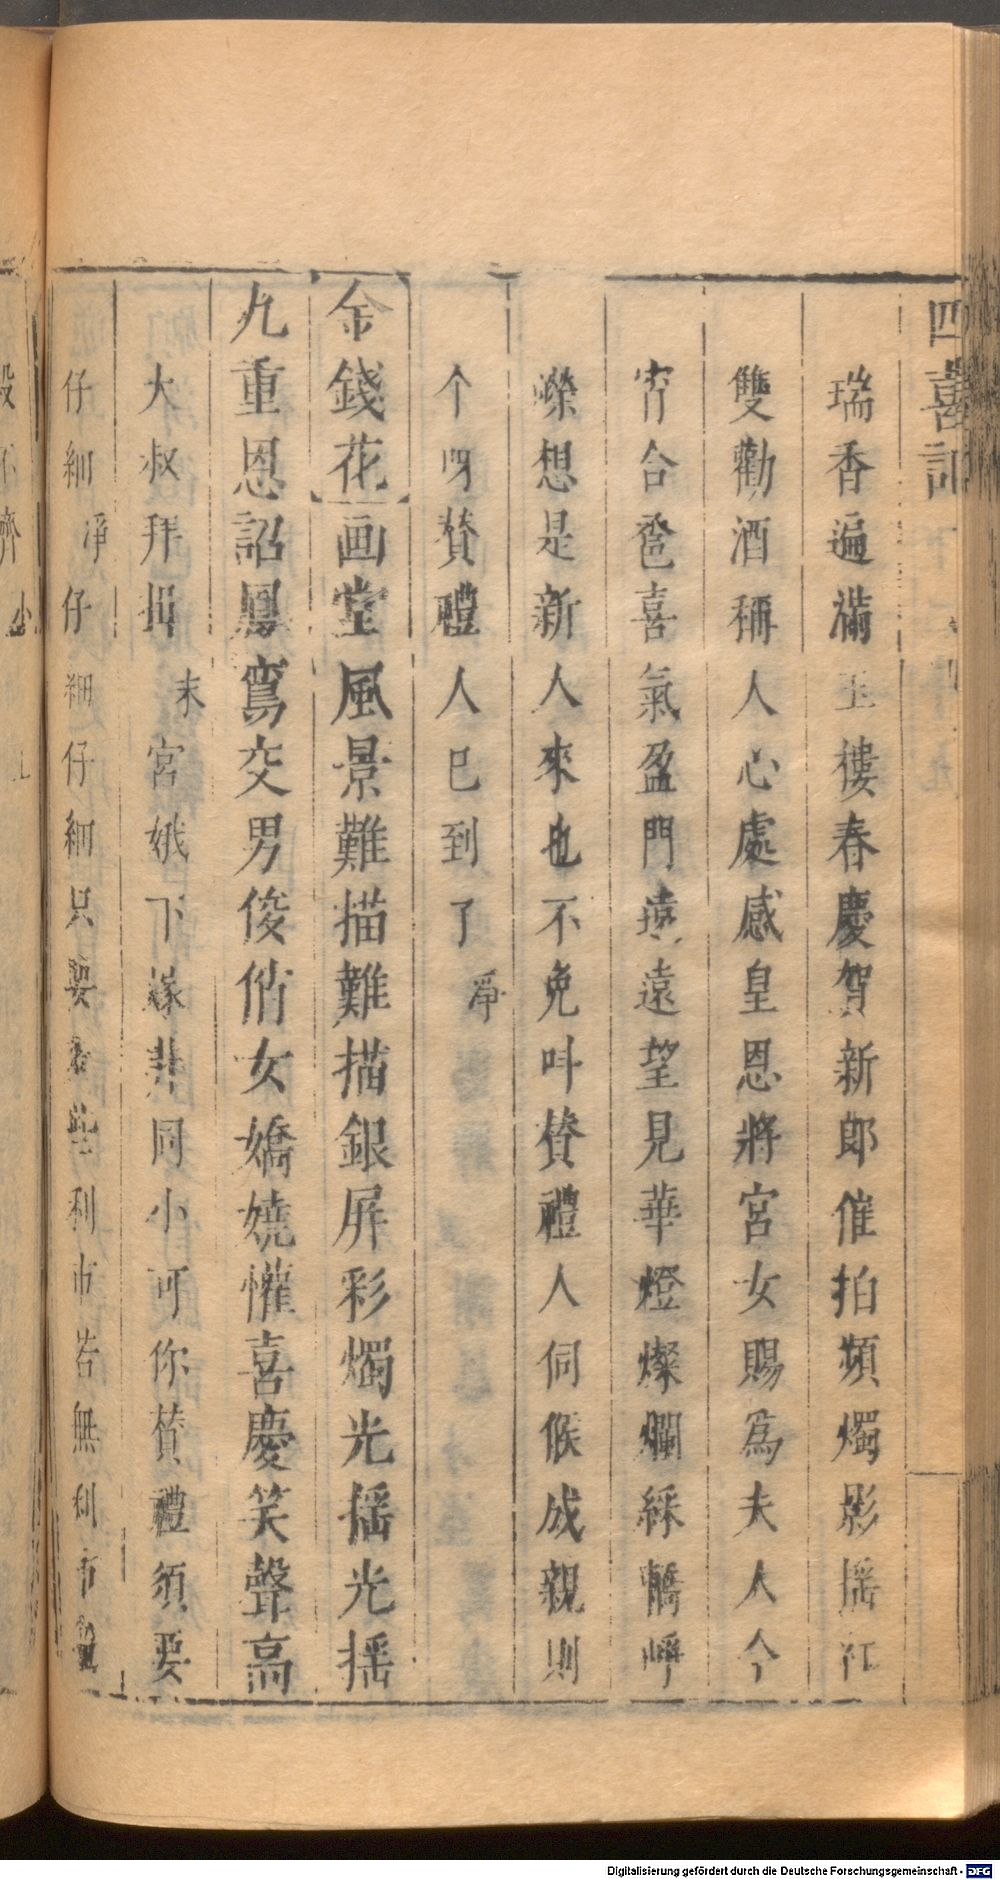 四喜記
瑞香遍滿玉樓春慶賀新郎催拍頻燭影揺紅
雙勸酒稱人心處感皇恩將宮女賜爲夫人今
宵合卺喜氣盈門遠遠望見華燈燦爛綵轎崢
嶸想是新人來也不免呌賛禮人伺候成親則
个 賛禮人已到了 淨
金錢花 画堂風景難描難描銀屏彩燭光揺光揺
九重恩詔鳳鸞交男俊俏女嬌嬈懽喜慶笑聲高
大叔拜揖 末 宮娥下嫁非同小可你賛禮須要
仔細 淨 仔細仔細只要利市若無利市
Digitalisierung gefördert durch die Deutsche Forschungsgemeinschaft - DFG